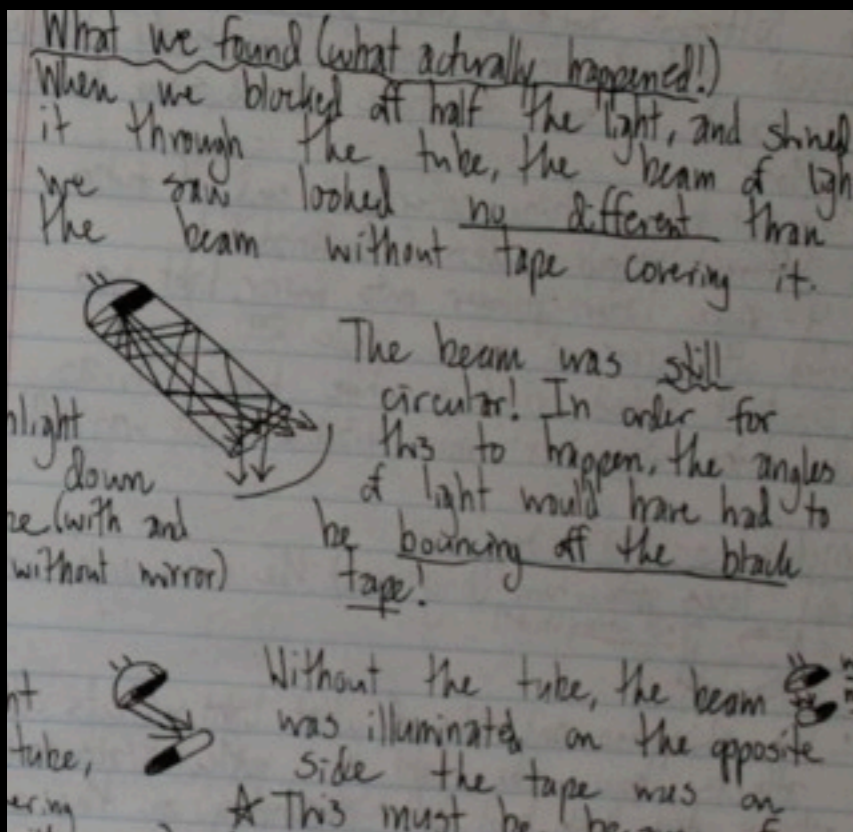 What we found (what actually happened!)
When we blocked off half the light, and shined
it through the tube, the beam of ligh
we saw looked no different than
the beam without tape covering it.
The beam was still
circular! In order for
this to happen, the angles
of light would have had to
be bouncing off the black
tape!
nlight
down
(with and
without mirror)
Without the tube, the beam
was illuminated on the opposite
side the tape was on
☆ This must be
nt
tube,
ering